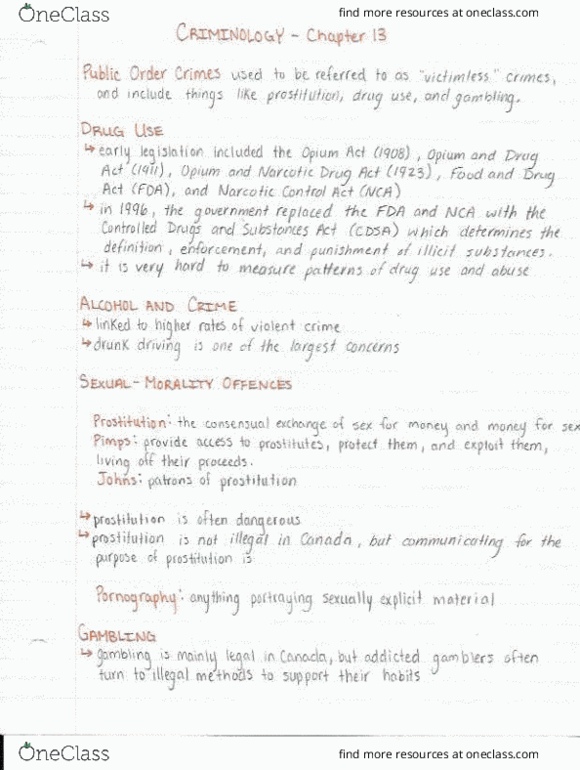 OneClass
find more resources at oneclass.com
CRIMINOLOGY - Chapter 13
Public Order Crimes used to be referred to as "victimless" crimes,
and include things like prostitution, drug use, and gambling.
DRUG USE
↳ early legislation included the Opium Act (1908), Opium and Drug
Act (1911), Opium and Narcotic Drug Act (1923), Food and Drug
Act (FDA), and Narcotic Control Act (NCA)
↳ in 1996, the government replaced the FDA and NCA with the
Controlled Drugs and Substances Act (CDSA) which determines the
definition, enforcement, and punishment of illicit substances.
↳ it is very hard to measure patterns of drug use and abuse
ALCOHOL AND CRIME
↳ linked to higher rates of violent crime
↳ drunk driving is one of the largest concerns
SEXUAL-MORALITY OFFENCES
Prostitution: the consensual exchange of sex for money and money for sex
Pimps: provide access to prostitutes, protect them, and exploit them,
living off their proceeds.
Johns: patrons of prostitution
↳ prostitution is often dangerous
↳ prostitution is not illegal in Canada, but communicating for the
purpose of prostitution is
Pornography: anything portraying sexually explicit material
GAMBLING
↳ gambling is mainly legal in Canada, but addicted gamblers often
turn to illegal methods to support their habits
OneClass
find more resources at oneclass.com